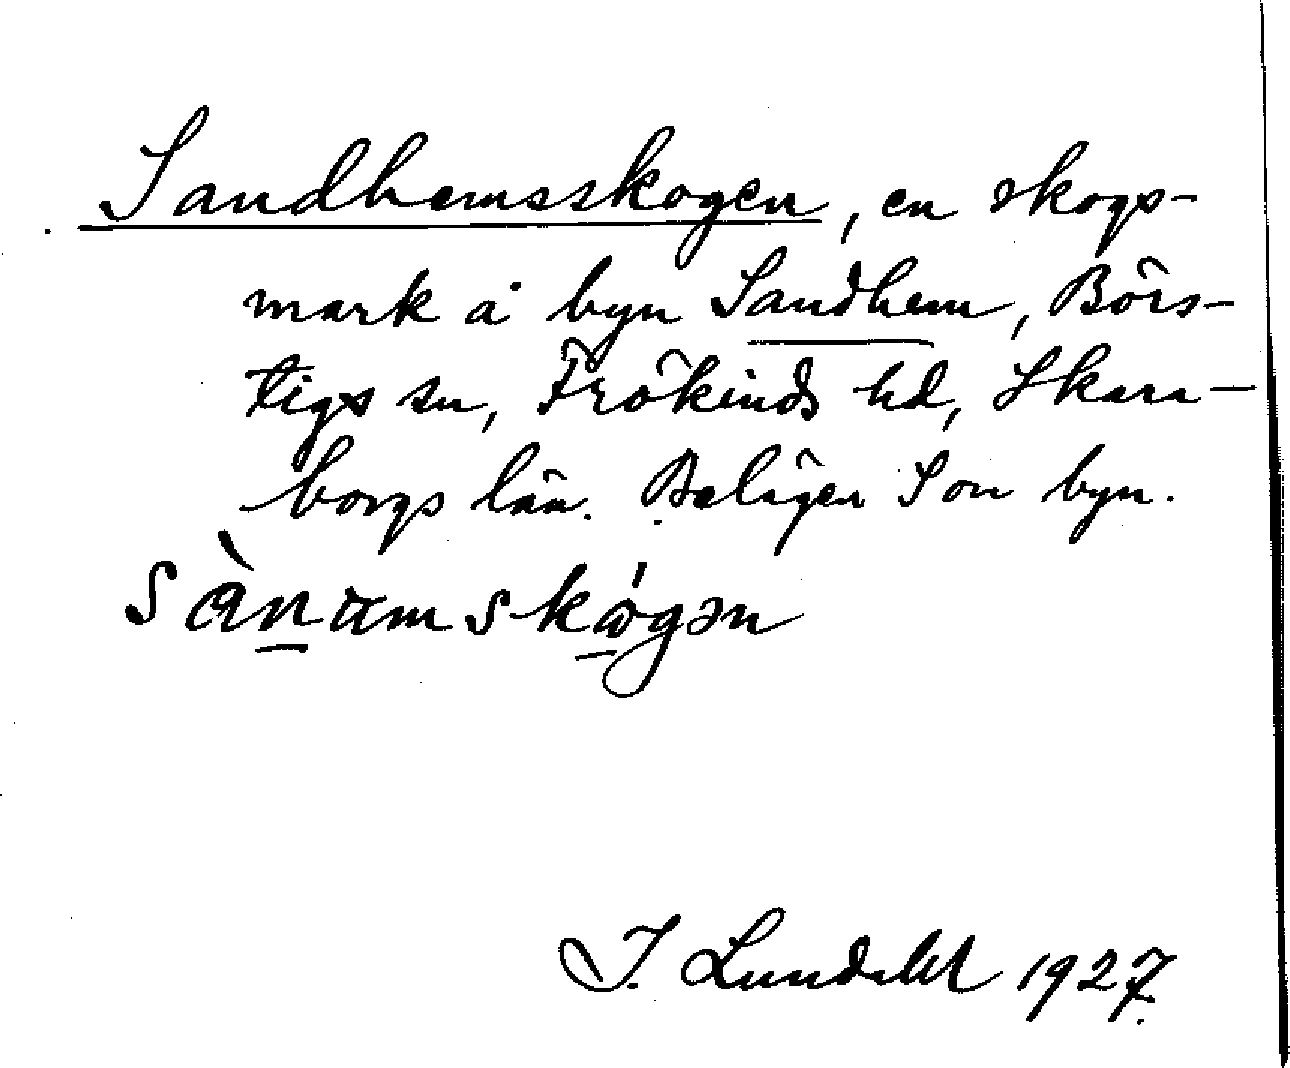 Sandhemsskogen, en skogs-
mark å byn Sandhem, Börs-
tigs sn, Frökinds hd, Skara-
borgs län. Belägen S om byn.
sànamskógən
I. Lundahl 1927.